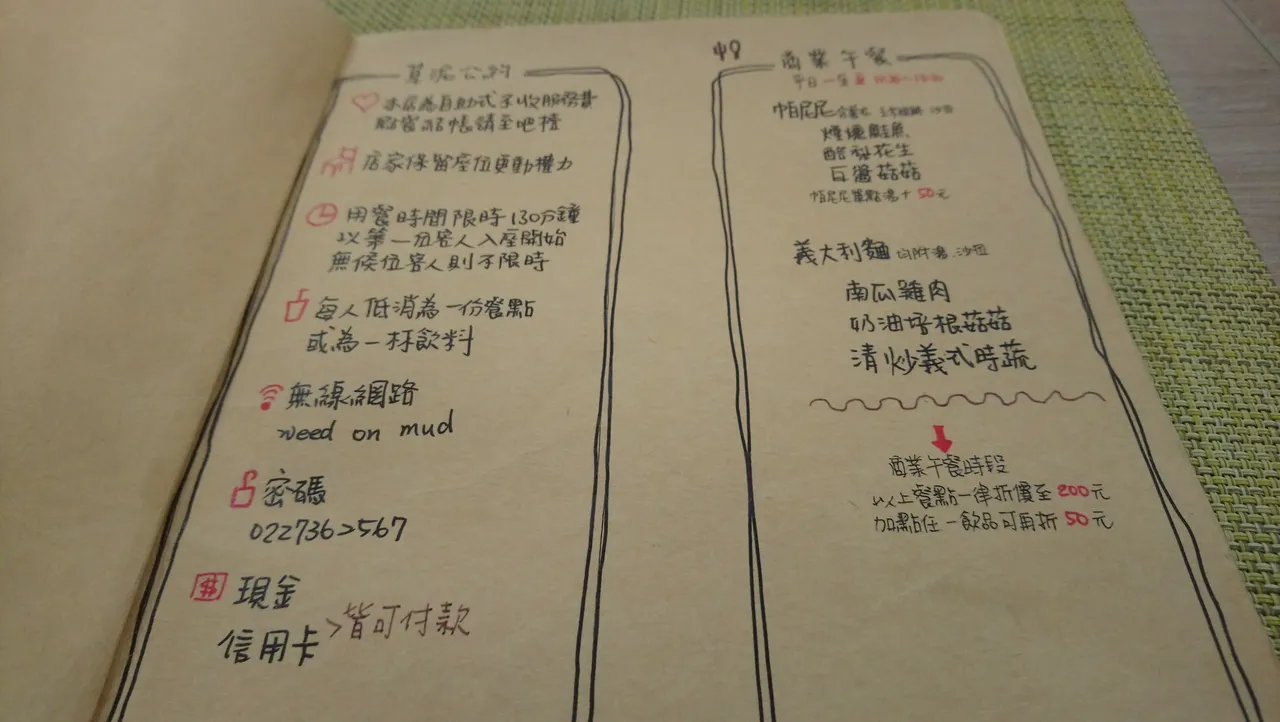 草泥公約
本店為自助式不收服務費
點餐結帳請至吧檯
店家保留座位更動權力
用餐時間限時130分鐘
以第一位客人入座開始
無候位客人則不限時
每人低消為一份餐點
或為一杯飲料
無線網路
weed on mud
密碼
0227362567
現金
信用卡 >皆可付款
商業午餐
平日一至五
帕尼尼 沙拉
煙燻鮭魚
酪梨花生
豆醬菇菇
帕尼尼單點湯+50元
義大利麵 均附湯.沙拉
南瓜雞肉
奶油培根菇菇
清炒義式時蔬
商業午餐時段
以上餐點一律折價至200元
加點任一飲品可再折50元